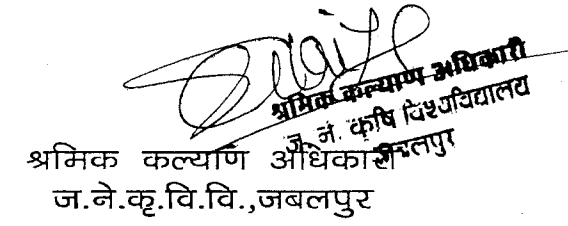 श्रमिक कल्याण अधिकारी
ज. ने. कृषि विश्वविद्यालय
जबलपुर
श्रमिक कल्याण अधिकारी
ज.ने.कृ.वि.वि.,जबलपुर